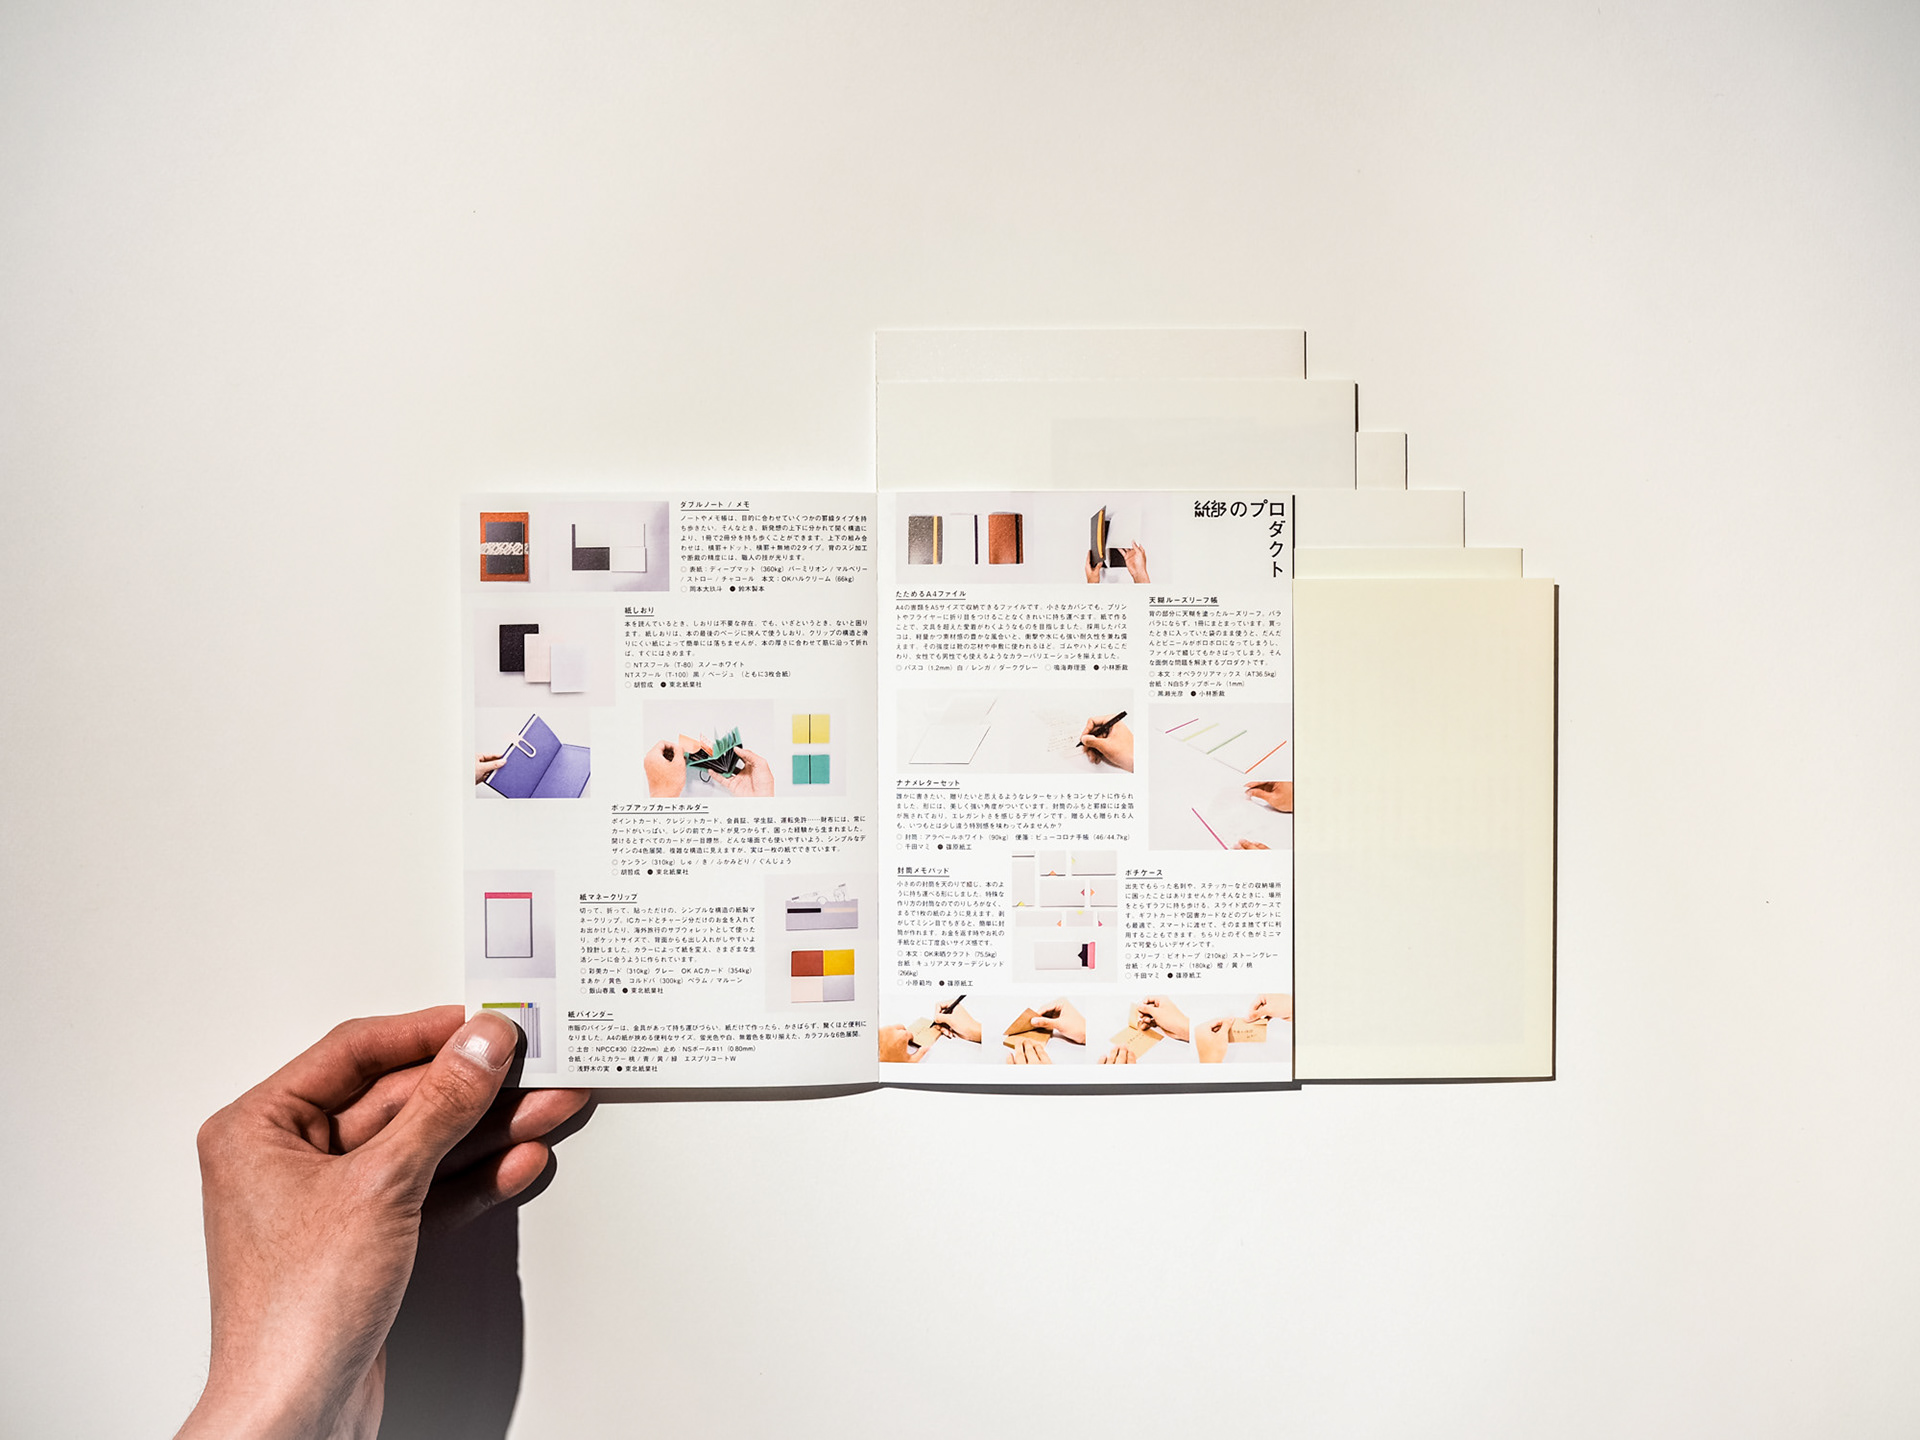 ダブルノート / メモ
ノートやメモ帳は、目的に合わせていくつかの罫線タイプを持
ち歩きたい。そんなとき、新発想の上下に分かれて開く構造に
より、1冊で2冊分を持ち歩くことができます。上下の組み合
わせは、横罫＋ドット、横罫＋無地の2タイプ。背のスジ加工
や断裁の精度には、職人の技が光ります。
○ 表紙：ディープマット（360kg）バーミリオン / マルベリー
/ ストロー / チャコール　本文：OKハルクリーム（66kg）
○ 岡本大玖斗　● 鈴木製本
紙しおり
本を読んでいるとき、しおりは不要な存在。でも、いざというとき、ないと困り
ます。紙しおりは、本の最後のページに挟んで使うしおり。クリップの構造と滑
りにくい紙によって簡単には落ちませんが、本の厚さに合わせて筋に沿って折れ
ば、すぐにはさめます。
○ NTスフール（T-80）スノーホワイト
NTスフール（T-100）黒 / ベージュ　（ともに3枚合紙）
○ 胡哲成　● 東北紙業社
ポップアップカードホルダー
ポイントカード、クレジットカード、会員証、学生証、運転免許……財布には、常に
カードがいっぱい。レジの前でカードが見つからず、困った経験から生まれました。
開けるとすべてのカードが一目瞭然。どんな場面でも使いやすいよう、シンプルなデ
ザインの4色展開。複雑な構造に見えますが、実は一枚の紙でできています。
○ ケンラン（310kg）しゅ / き / ふかみどり / ぐんじょう
○ 胡哲成　● 東北紙業社
紙マネークリップ
切って、折って、貼っただけの、シンプルな構造の紙製マ
ネークリップ。ICカードとチャージ分だけのお金を入れて
お出かけしたり、海外旅行のサブウォレットとして使った
り。ポケットサイズで、背面からも出し入れがしやすいよ
う設計しました。カラーによって紙を変え、さまざまな生
活シーンに合うように作られています。
○ 彩美カード（310kg）グレー　OK ACカード（354kg）
まあか / 黄色　コルドバ（300kg）ベラム / マルーン
○ 飯山春風　● 東北紙業社
紙バインダー
市販のバインダーは、金具があって持ち運びづらい。紙だけで作ったら、かさばらず、驚くほど便利に
なりました。A4の紙が挟める便利なサイズ。蛍光色や白、無着色を取り揃えた、カラフルな6色展開。
○ 土台：NPCC#30（2.22mm）止め：NSボール#11（0.80mm）
合紙：イルミカラー 桃 / 青 / 黄 / 緑　エスプリコートW
○ 浅野木の実　● 東北紙業社
紙部のプロダクト
たためるA4ファイル
A4の書類をA5サイズで収納できるファイルです。小さなカバンでも、プリン
トやフライヤーに折り目をつけることなくきれいに持ち運べます。紙で作る
ことで、文具を超えた愛着がわくようなものを目指しました。採用したパス
コは、軽量かつ素材感の豊かな風合いと、衝撃や水にも強い耐久性を兼ね備
えます。その強度は靴の芯材や中敷に使われるほど。ゴムやハトメにもこだ
わり、女性でも男性でも使えるようなカラーバリエーションを揃えました。
○ パスコ（1.2mm）白 / レンガ / ダークグレー　○ 鳴海寿理亜　● 小林断裁
天糊ルーズリーフ帳
背の部分に天糊を塗ったルーズリーフ。バラ
バラにならず、1冊にまとまっています。買っ
たときに入っていた袋のまま使うと、だんだ
んとビニールがボロボロになってしまうし、
ファイルで綴じてもかさばってしまう。そん
な面倒な問題を解決するプロダクトです。
○ 本文：オペラクリアマックス（AT36.5kg）
台紙：N白Sチップボール（1mm）
○ 黒瀬光彦　● 小林断裁
ナナメレターセット
誰かに書きたい、贈りたいと思えるようなレターセットをコンセプトに作られ
ました。形には、美しく強い角度がついています。封筒のふちと罫線には金箔
が施されており、エレガントさを感じるデザインです。贈る人も贈られる人
も、いつもとは少し違う特別感を味わってみませんか？
○ 封筒：アラベールホワイト（90kg）　便箋：ビューコロナ手帳（46/44.7kg）
○ 千田マミ　● 篠原紙工
封筒メモパッド
小さめの封筒を天のりで綴じ、本のよ
うに持ち運べる形にしました。特殊な
作り方の封筒なのでのりしろがなく、
まるで1枚の紙のように見えます。剥
がしてミシン目でちぎると、簡単に封
筒が作れます。お金を返す時やお礼の
手紙などに丁度良いサイズ感です。
○ 本文：OK未晒クラフト（75.5kg）
台紙：キュリアスマターデジレッド
（266kg）
○ 小原範均　● 篠原紙工
ポチケース
出先でもらった名刺や、ステッカーなどの収納場所
に困ったことはありませんか？そんなときに、場所
をとらずラフに持ち歩ける、スライド式のケースで
す。ギフトカードや図書カードなどのプレゼントに
も最適で、スマートに渡せて、そのまま捨てずに利
用することもできます。ちらりとのぞく色がミニマ
ルで可愛らしいデザインです。
○ スリーブ：ビオトープ（210kg）ストーングレー
台紙：イルミカード（180kg）橙 / 黄 / 桃
○ 千田マミ　● 篠原紙工